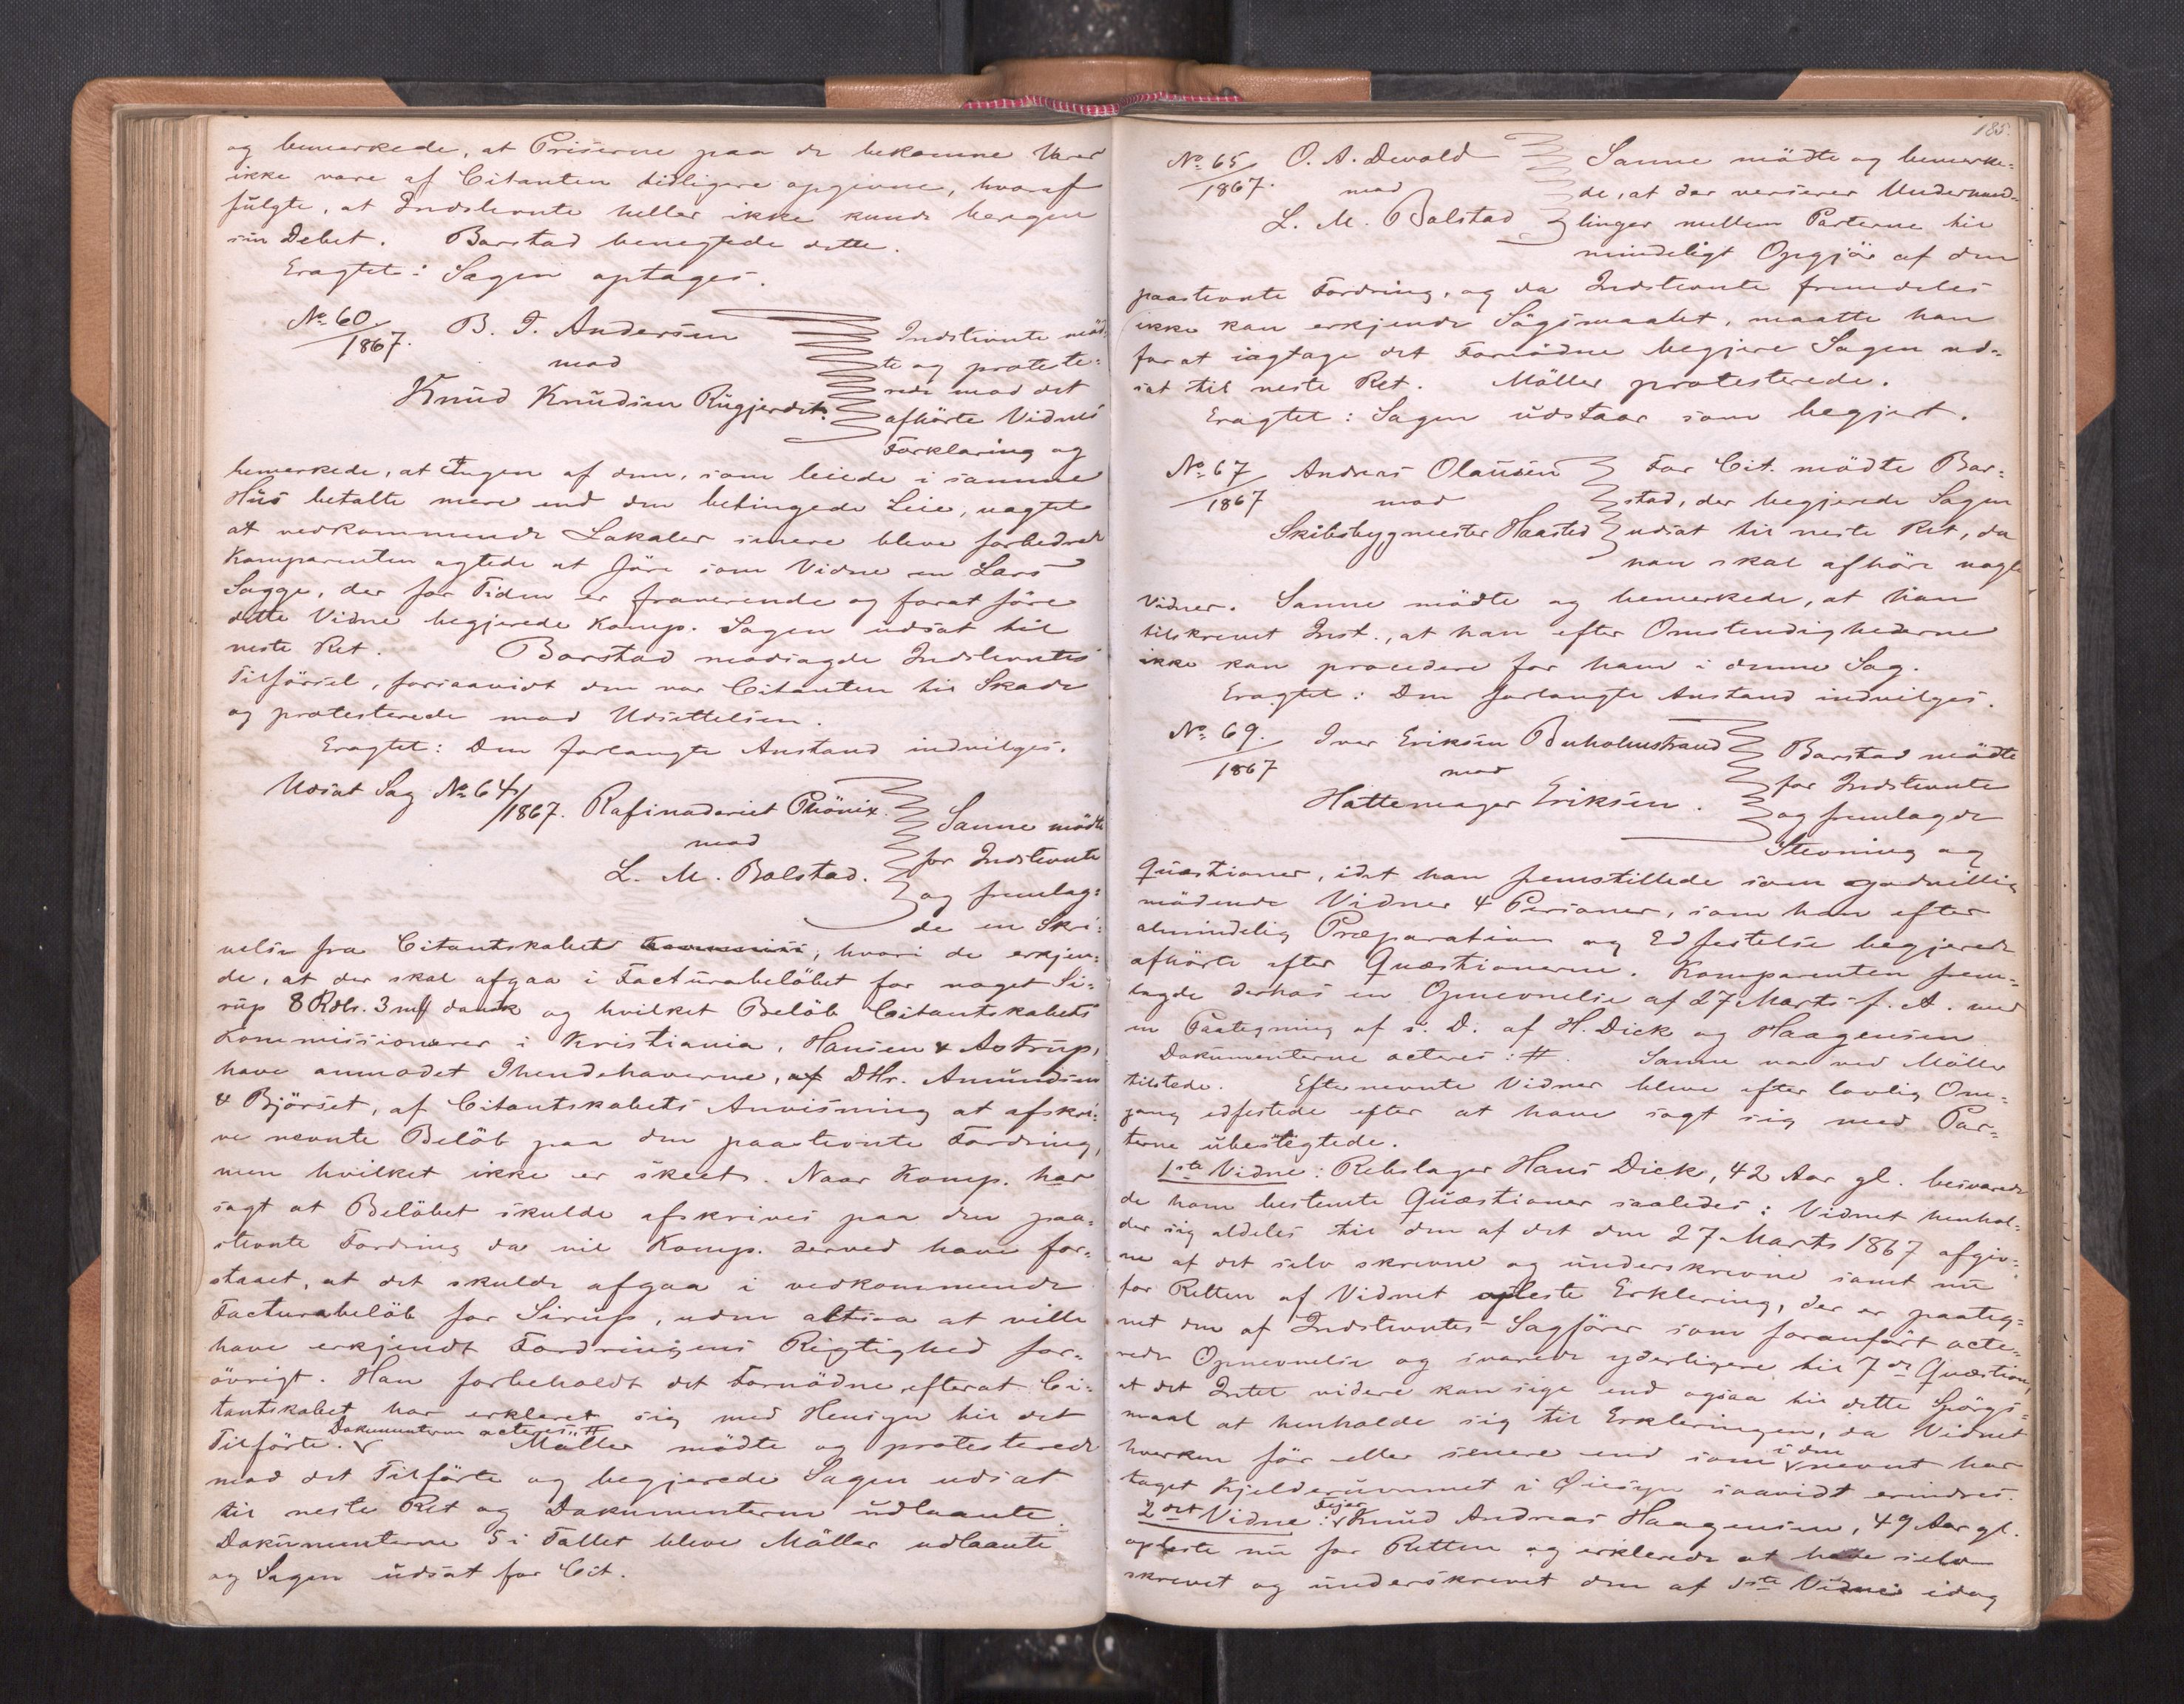 og bemærkede, at Priserne paa de bekomne Varer
ikke vare af Citanten tidligere opgivne, hvoraf
fulgte, at Indstevnte heller ikke kunde beregne
sin Debet. Barstad benegtede dette.
Eragtet: Sagen optages.
No 60/1867. B. T. Andersen
mod
Knud Knudsen Rugjerdet.
Indstevnte mød-
te og proteste-
rede mod det
afhörte Vidnes
Forklaring og
bemerkede, at Ingen af dem, som leiede i samme
Hus betalte mere end den betingede Leie, uagtet
at vedkommende Lokaler senere bleve forbedrede
Komparenten agtede at före som Vidne en Lars
Sagge, der for Tiden er fraverende og forat före
dette Vidne begjerede Komp. Sagen udsat til
neste Ret. Barstad modsagde Indstevntes
Tilförsel, forsaavidt den var Citanten til Skade
og protesterede mod Udsettelsen.
Eragtet: Den forlangte Anstand indvilges.
Udsat Sag No 64/1867. Rafinaderiet Phönix
mod
L. M. Bolstad.
Sanne mödte
for Indstevnte
og fremlag-
de en Skri-
velse fra Citantskabet, hvori de erkjen-
de, at der skal afgaa i Facturabelöbet for noget Si-
rup 8 Rdlr. 3 mk dansk og hvilket Belöb Citantskabets
Kommissionærer i Kristiania, Hansen & Astrup,
have anmodet Ihendehaverne, af DHr. Amundsen
& Björset, af Citantskabets Anvisning at afskri-
ve nevnte Belöb paa den paastevnte Fordring,
men hvilket ikke er skeet. Naar Komp. har
sagt at Belöbet skulde afskrives paa den paa-
stevnte Fordring da vil Komp. derved have for-
staaet, at det skulde afgaa i vedkommende
Facturabelöb for Sirup, uden altsaa at ville
have erkjendt Fordringens Rigtighed for-
övrigt. Han forbeholdt det Fornödne efterat Ci-
tantskabet har erkleret sig med Hensyn til det
Tilförte. Dokumenterne acteres: # Möller mödte og protesterede
mod det Tilförte og begjerede Sagen udsat
til neste Ret og Dokumenterne udlaante.
Dokumenterne 5 i Tallet bleve Möller udlaante
og Sagen udsat for Cit.
185.
No 65/1867. O. A. Devold
mod
L. M. Bolstad
Sanne mödte og bemerke-
de, at der verserer Underhand-
linger mellem Parterne til
mindeligt Opgjör af den
paastevnte Fordring, og da Indstevnte fremdeles
ikke kan erkjende Sögsmaalet, maatte han
for at iagtage det Fornödne begjere Sagen ud-
sat til neste Ret. Möller protesterede.
Eragtet: Sagen udstaar som begjert.
No 67/1867 Andreas Olausen
mod
Skibsbygmester Haasted
For Cit. mödte Bar-
stad, der begjerede Sagen
udsat til neste Ret, da
han skal afhöre nogle
Vidner. Sanne mödte og bemerkede, at han
tilskrevet Inst., at han efter Omstendighederne
ikke kan procedere for ham i denne Sag.
Eragtet: Den forlangte Anstand indvilges.
No 69./1867 Iver Eriksen Buholmstrand
mod
Hattemager Eriksen.
Barstad mödte
for Indstevnte
og fremlagde
Stevning og
Quæstioner, idet han fremstillede som godvillig
mödende Vidner 4 Personer, som han efter
almindelig Præparation og Edfestelse begjerede
afhörte efter Quæstionerne. Komparenten frem-
lagde derhos en Opnevnelse af 27 Marts f. A. med
en Paategning af s. D. af H. Dick og Haagensen
Dokumenterne acteres: #. Sanne var ved Möller
tilstede. Efternevnte Vidner bleve efter lovlig Om-
gang edfestede efter at have sagt sig med Par-
terne ubeslegtede.
1ste Vidne: Rebslager Hans Dick, 42 Aar gl. besvarede
de ham bestemte Quæstioner saaledes: Vidnet henhol-
der sig aldeles til den af det den 27 Marts 1867 afgiv-
ne af det selv skrevne og underskrevne samt nu
for Retten af Vidnet opleste Erklering, der er paateg-
net den af Indstevntes Sagförer som foranfört acte-
rede Opnevnelse og svarede yderligere til 7de Quæstion,
at det Intet videre kan sige end ogsaa til dette Spörgs-
maal at henholde sig til Erkleringen, da Vidnet
hverken för eller senere end som i den nevnt har
taget Kjelderrummet i Øiesyn saavidt erindres.
2det Vidne: Fejer Knud Andreas Haagensen, 49 Aar gl.
opleste nu for Retten og erklerede at have selv
skrevet og underskrevet den af 1ste Vidne idag